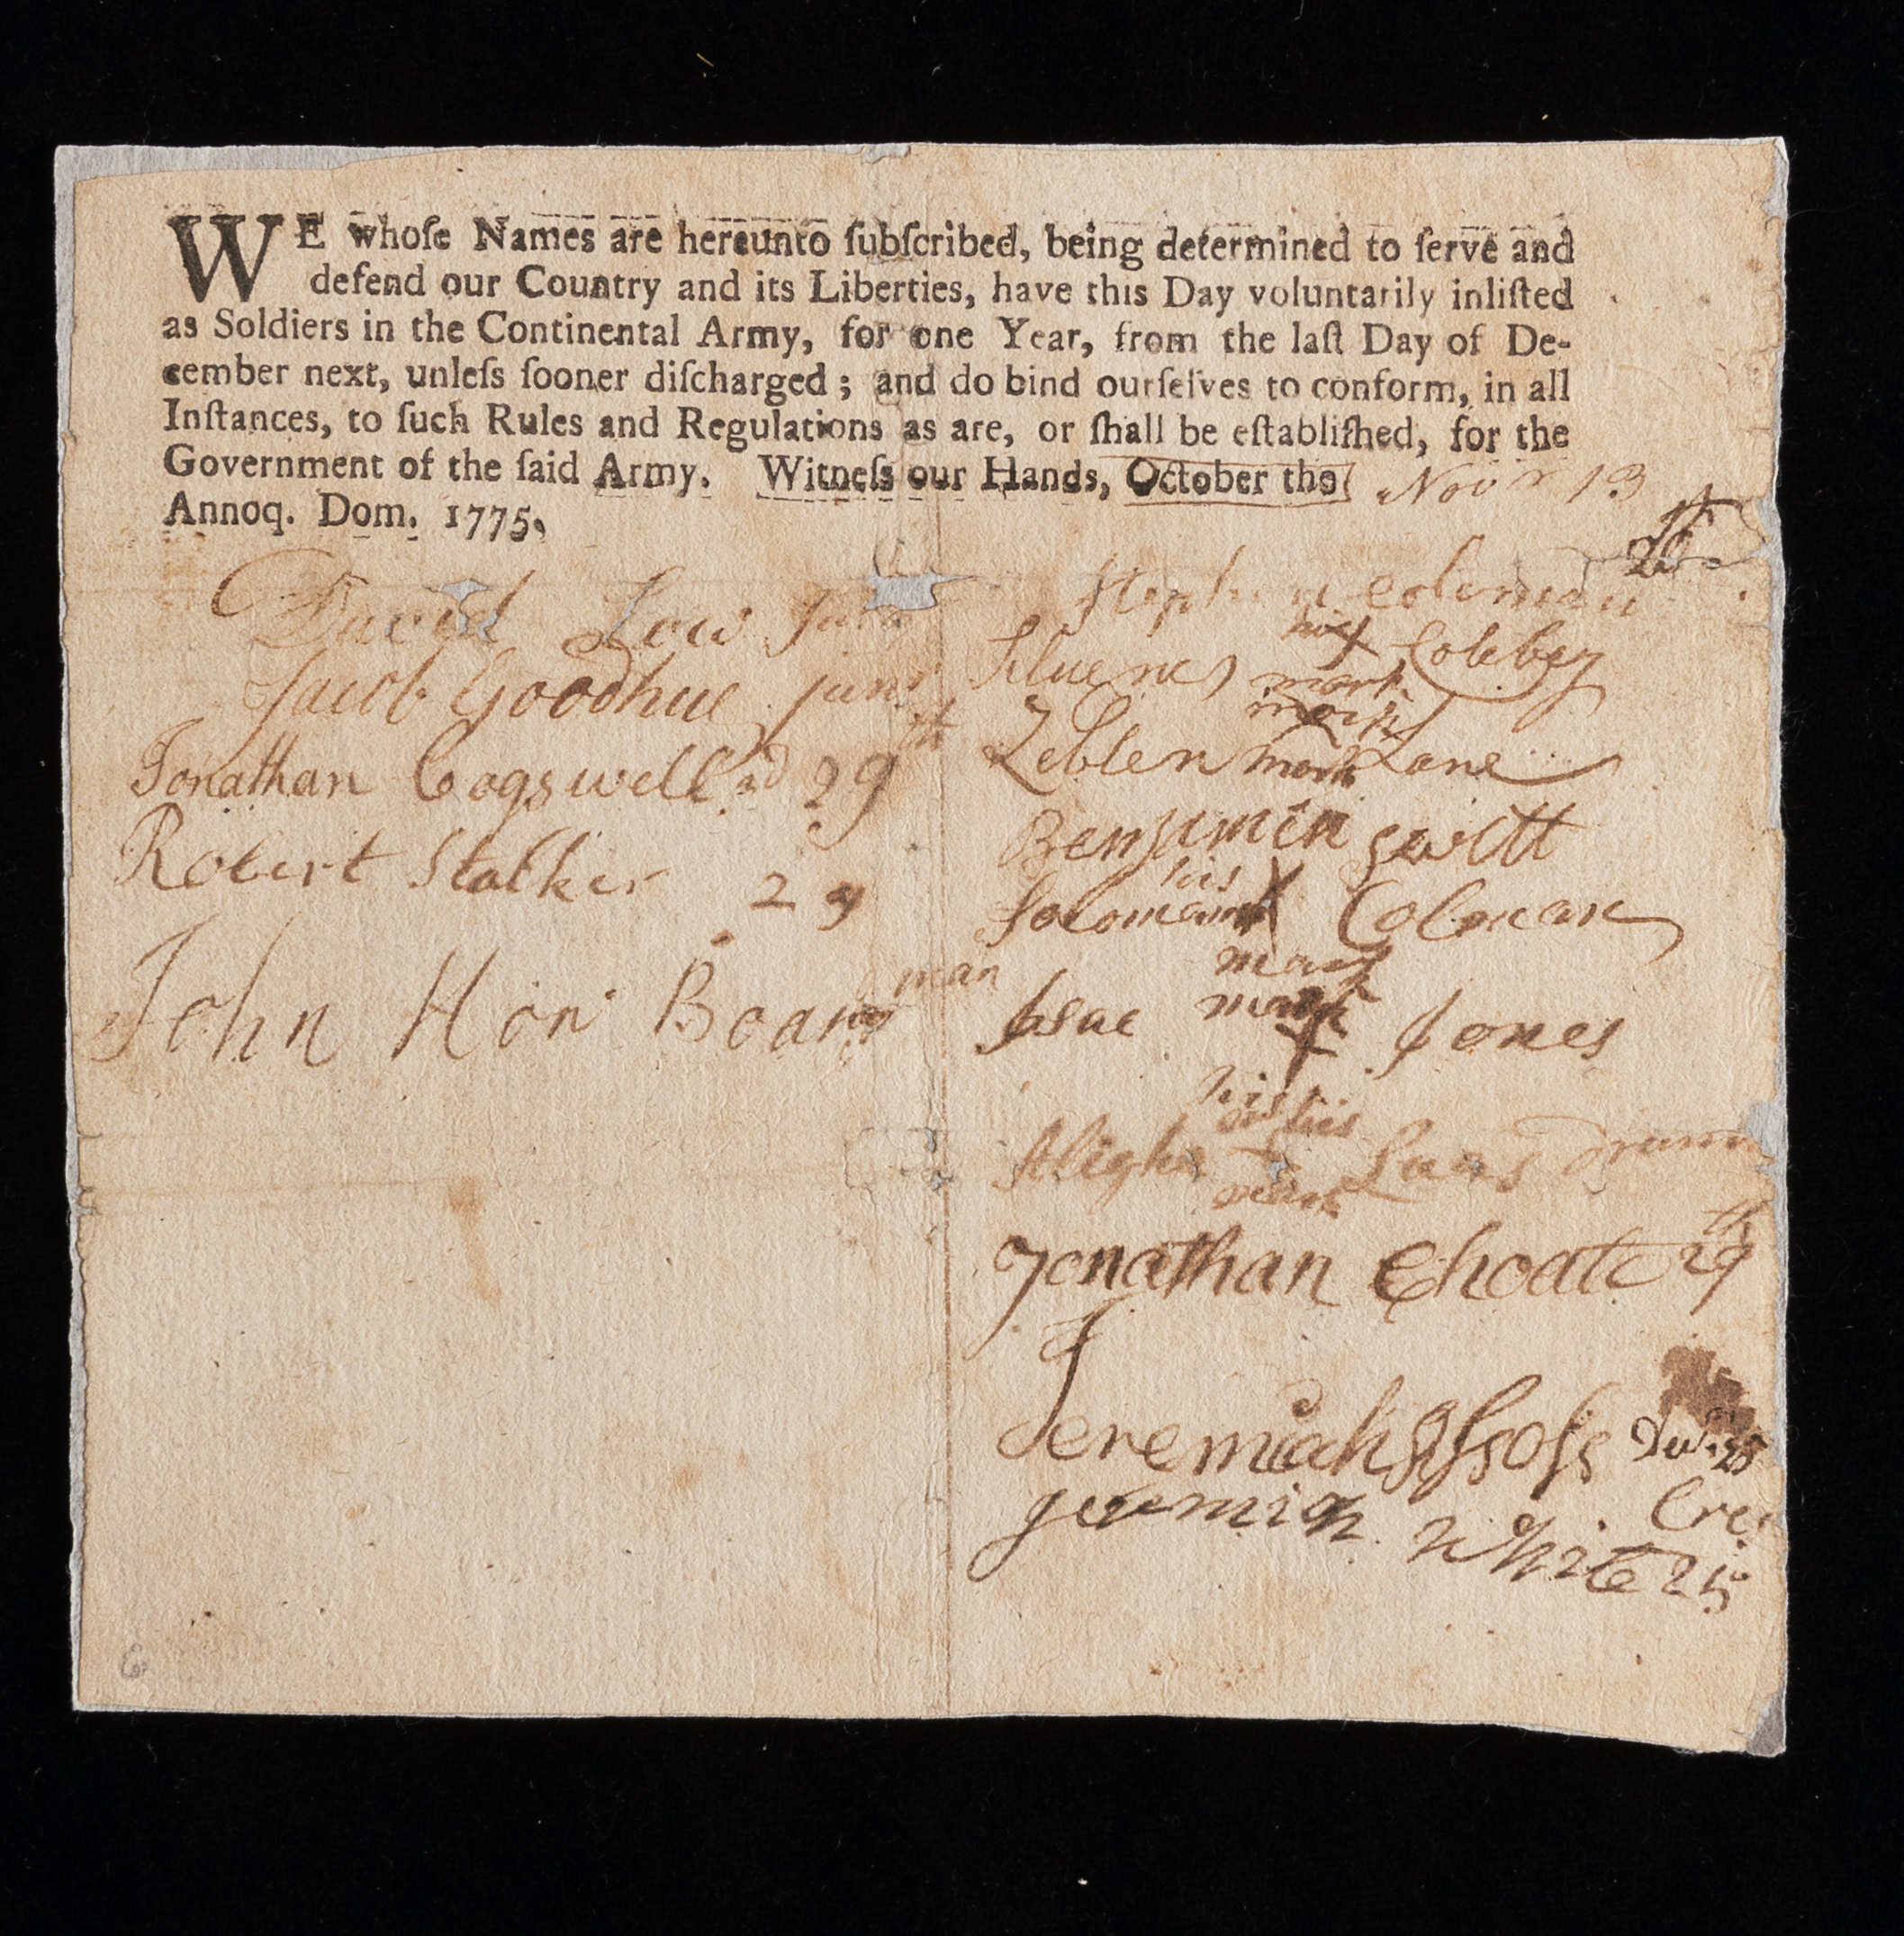 WE whoſe Names are hereunto ſubſcribed, being determined to ſerve and
defend our Country and its Liberties, have this Day voluntarily inliſted
as Soldiers in the Continental Army, for one Year, from the laſt Day of De-
cember next, unleſs ſooner diſcharged; and do bind ourſelves to conform, in all
Inſtances, to ſuch Rules and Regulations as are, or ſhall be eſtabliſhed, for the
Government of the ſaid Army. Witneſs our Hands, October the Novr 13
Annoq. Dom. 1775.
David Low Junr
Jacob Goodhue junr
Jonathan Cogswell 29th
Robert Stalker 29
John Hon Boardman
Stephen Coleman
his Colebey
mark
Lane
mark
Benjimin
his
Soloman X Colman
mark
Isac mark Jones
his
his
mark
Jonathan Choate 29th
Jeremiah
White 25
6